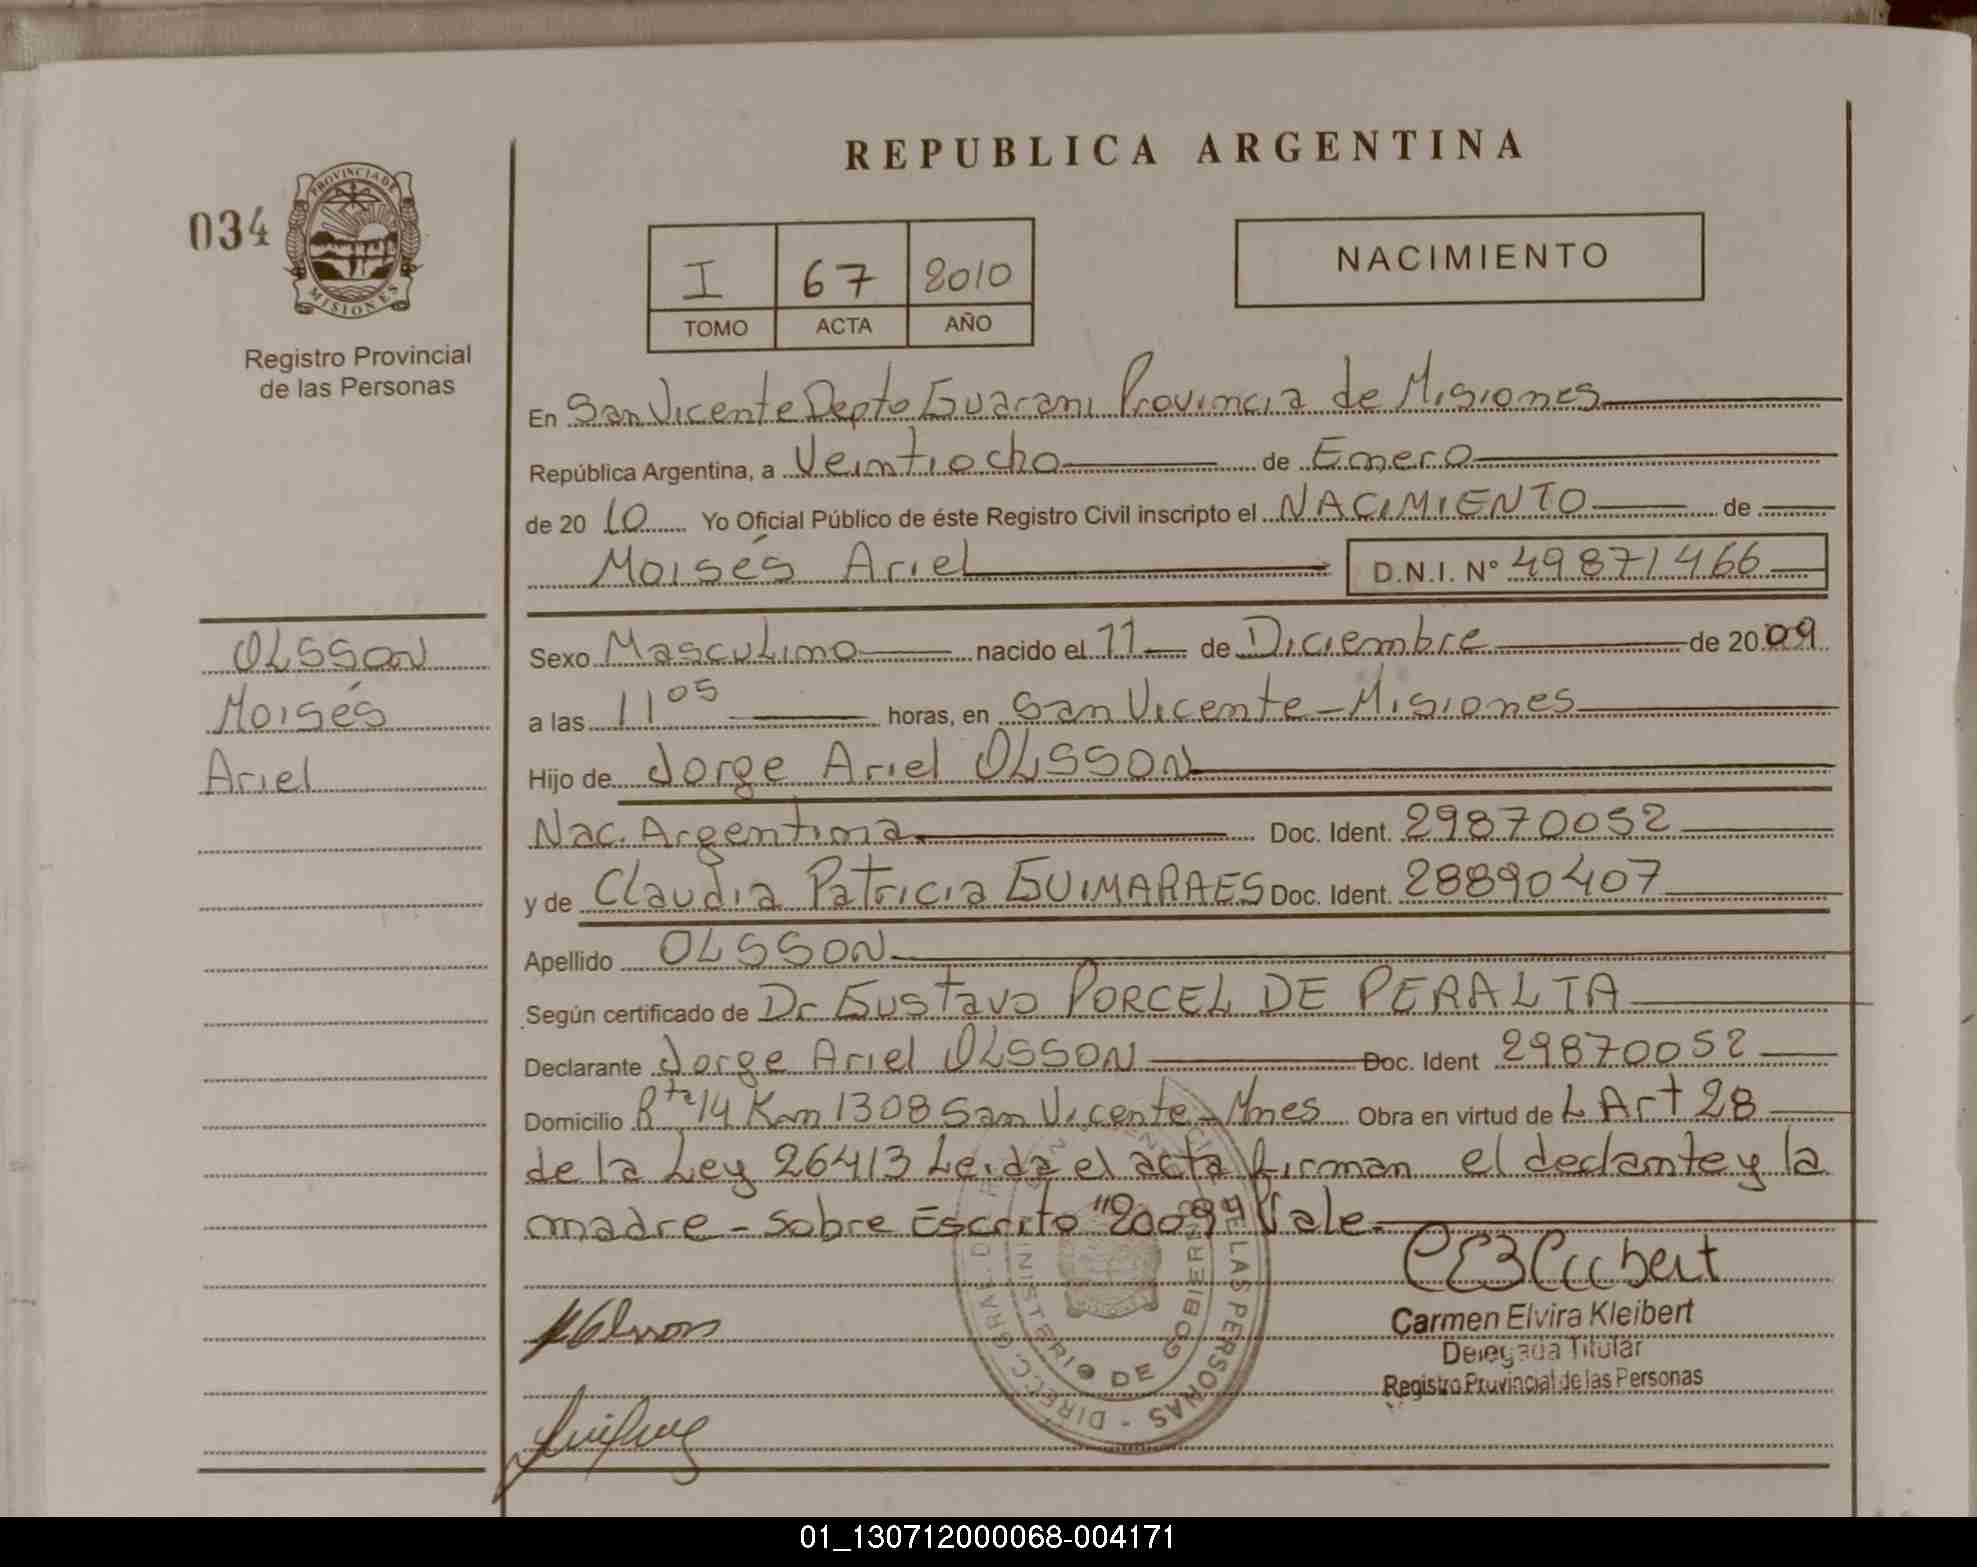 REPUBLICA ARGENTINA
034
PROVINCIA DE
MISIONES
Registro Provincial
de las Personas
I 67 2010
TOMO ACTA AÑO
NACIMIENTO
En San Vicente Depto Guarani Provincia de Misiones
República Argentina, a Veintiocho de Enero
de 20 10 Yo Oficial Público de éste Registro Civil inscripto el NACIMIENTO de
Moisés Ariel D.N.I. Nº 49871466
OLSSON
Moisés
Ariel
Sexo Masculino nacido el 11 de Diciembre de 2009
a las 11 05 horas, en San Vicente - Misiones
Hijo de Jorge Ariel OLSSON
Nac. Argentina Doc. Ident. 29870052
y de Claudia Patricia GUIMARAES Doc. Ident. 28890407
Apellido OLSSON
Según certificado de Dr Gustavo PORCEL DE PERALTA
Declarante Jorge Ariel OLSSON Doc. Ident 29870052
Domicilio Rta 14 Km 1308 San Vicente - Mnes Obra en virtud de L Art 28
de la Ley 26413 Leida el acta firman el declante y la
madre - Sobre Escrito "2009" Vale.
MINISTERIO DE GOBIERNO
DE LAS PERSONAS - DIRECC. GRAL. D
Carmen Elvira Kleibert
Delegada Titular
Registro Provincial de las Personas
01_130712000068-004171